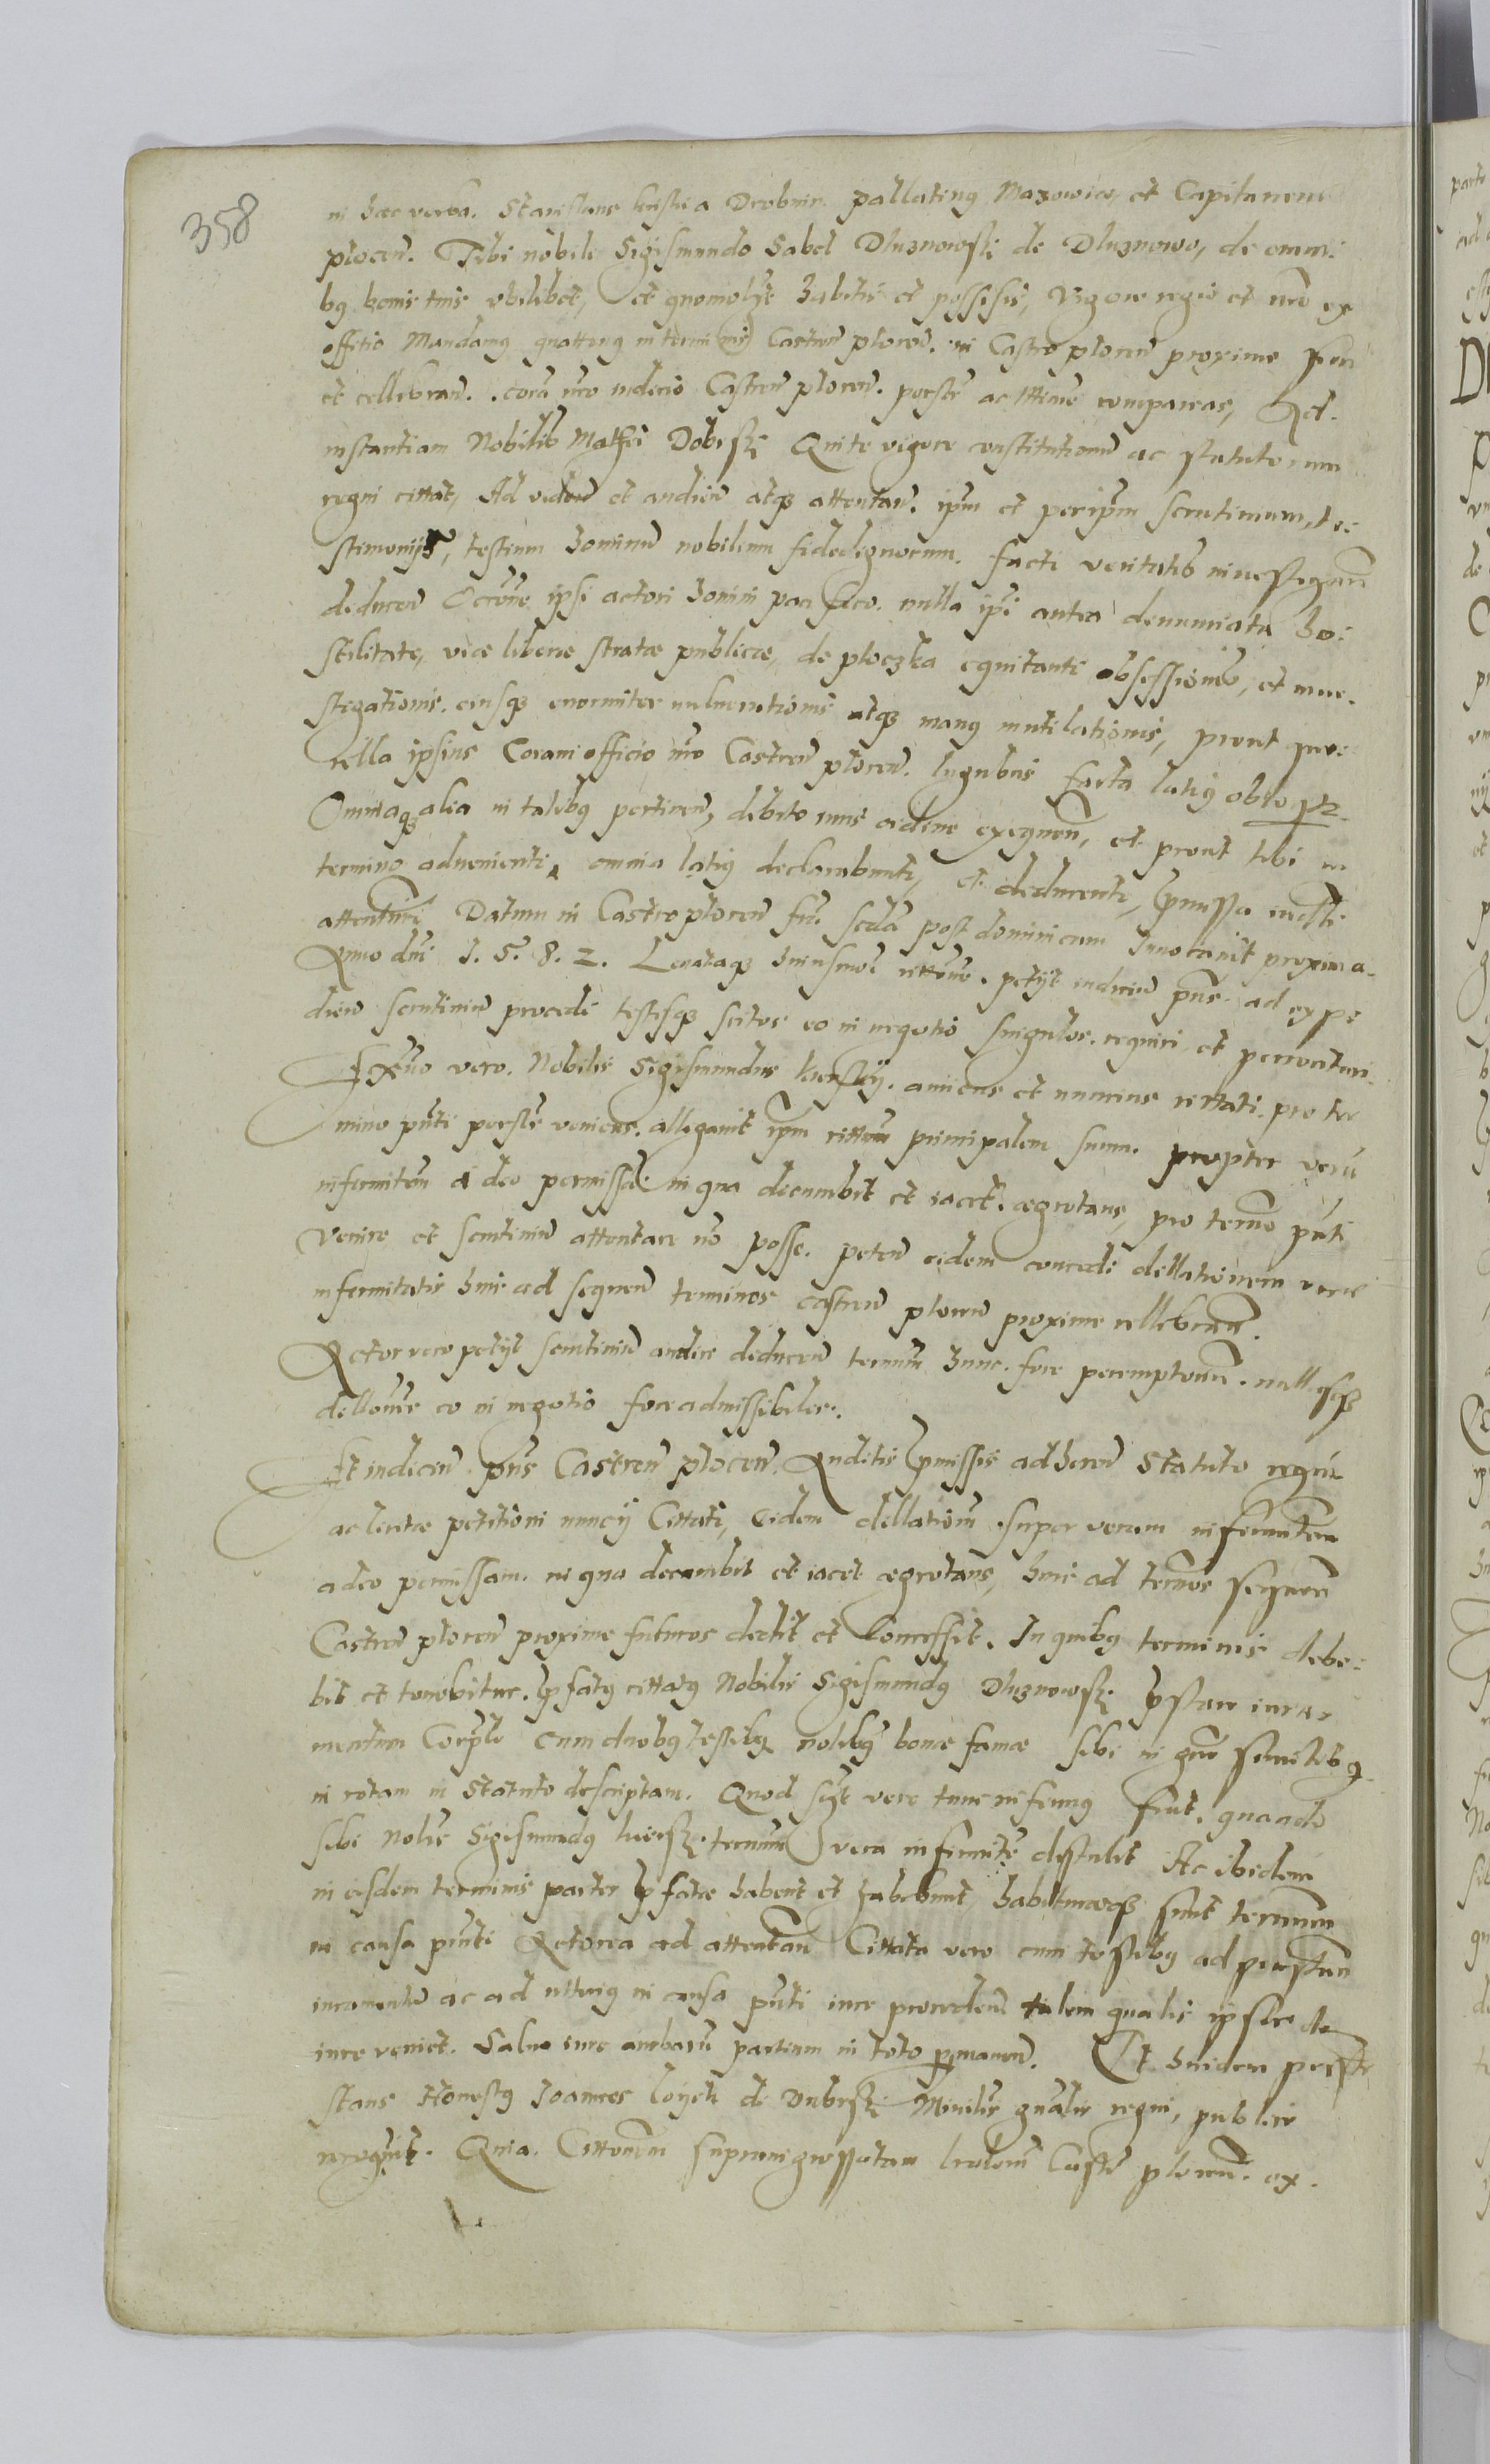 358
in hac verba. Stanislaus kriski a Drobnin pallatinus Mazowiae, et Capitaneus
plocen. Tibi nobile Sigismundo Sabel Dluznowski de Dluznowo, de omni:
bus bonis tuis ubilibet, et quomolibet habitis et possessis, Vigore regio et nro ex
officio Mandamus quatenus in terminis Castren plocen. in Castro plocen proxime
et cellebran. cora nro iudicio Castren plocen. personaliter ac ttime compareas, Ad
instantiam Nobilis Mathei Dobrski Qui te vigore constitutionum ac statutorum
regni cittat, Ad viden et audien atque attentan. ipm et per ipm scrutinium, te:
stimonijs, testium hominum nobilium fidedignorum. facti veritatis investigan
deducen ipsi actori homini pacifico. nulla ipsi antea denunciata ho:
stilitate, viae liberae stratae publicae, de ploczka equitanti obsessionis, et inve.
stigationis. eiusque enormiter vulnerationis atque manus mutilationis, prout que:
rella ipsius Coram officio nro Castren plocen. lugubris facta latius obloqr.
Omniaque alia in talibus pertinen, debito iuris ordine exequen, et prout tibi in
termino advenienti, omnia latius declarabunt, et deducent, pmissa iuste
attenturi Datum in Castro plocen fria scda post dominicam Invocavit proxima.
Anno dni 1.5.8.2. Lectaque huiusmodi cittone. petyt iudicium pns. ad expe
dien scrutinium procedi testesque scitos eo in negotio singulos. requiri et percunctari
Ex adverso vero. Nobilis Sigismundus kerszky. amicus et nuncius cittati. pro ter
mino pnti personaliter veniens. allegavit ipm cittatum principalem suum. propter veram
infirmitatem a deo permissam in qua decumbit et iacet. aegrotans, pro termino pnti
venire et scrutinium attentare no posse. peten eidem concedi dillationem verae
infirmitatis hinc ad sequen terminos castren plocen proxime cellebran.
Actor vero petyt scrutinium audire deducen terminum hunc. fore peremptorium. nullasque
dillones eo in negotio fore admissibiles.
Et iudicium pns Castren plocen. Auditis pmissis adheren Statuto regni
ac petitioni nuncij Cittati, Eidem dillationem super veram infirmitatem
a deo permissam. in qua decumbit et iacet aegrotans, hinc ad terminos sequen
Castren plocen proxime futuros dedit et Concessit. In quibus terminis debe:
bit et tenebitur. pfatus cittatus Nobilis Sigismundus Dluznowski pstare iura:
mentum Corple cum duobus testibus nobilibus bonae famae sibi in gne similibus
in rotam in Statuto descriptam. Quod sit vere tunc infirmus fuit. quando
sibi Nobilis Sigismundus terminum vera infirmitate distulit Ac ibidem
in eisdem terminis partes pfatae habent et habebunt, habituraeque sunt terminum
in causa pnti Actorea ad attentan Cittata vero cum testibus ad prestan
iuramentum ac ad ulterius in causa pnti iure proceden talem qualis ipsis de
iure veniet. Salvo iure ambarum partium in toto permanen. Et ibidem perso
stans Honestus Joannes de Ministerialis gnalis regni, publice
recognovit. Quia. Cittonem supraingrossatam Castren plocen. ex.